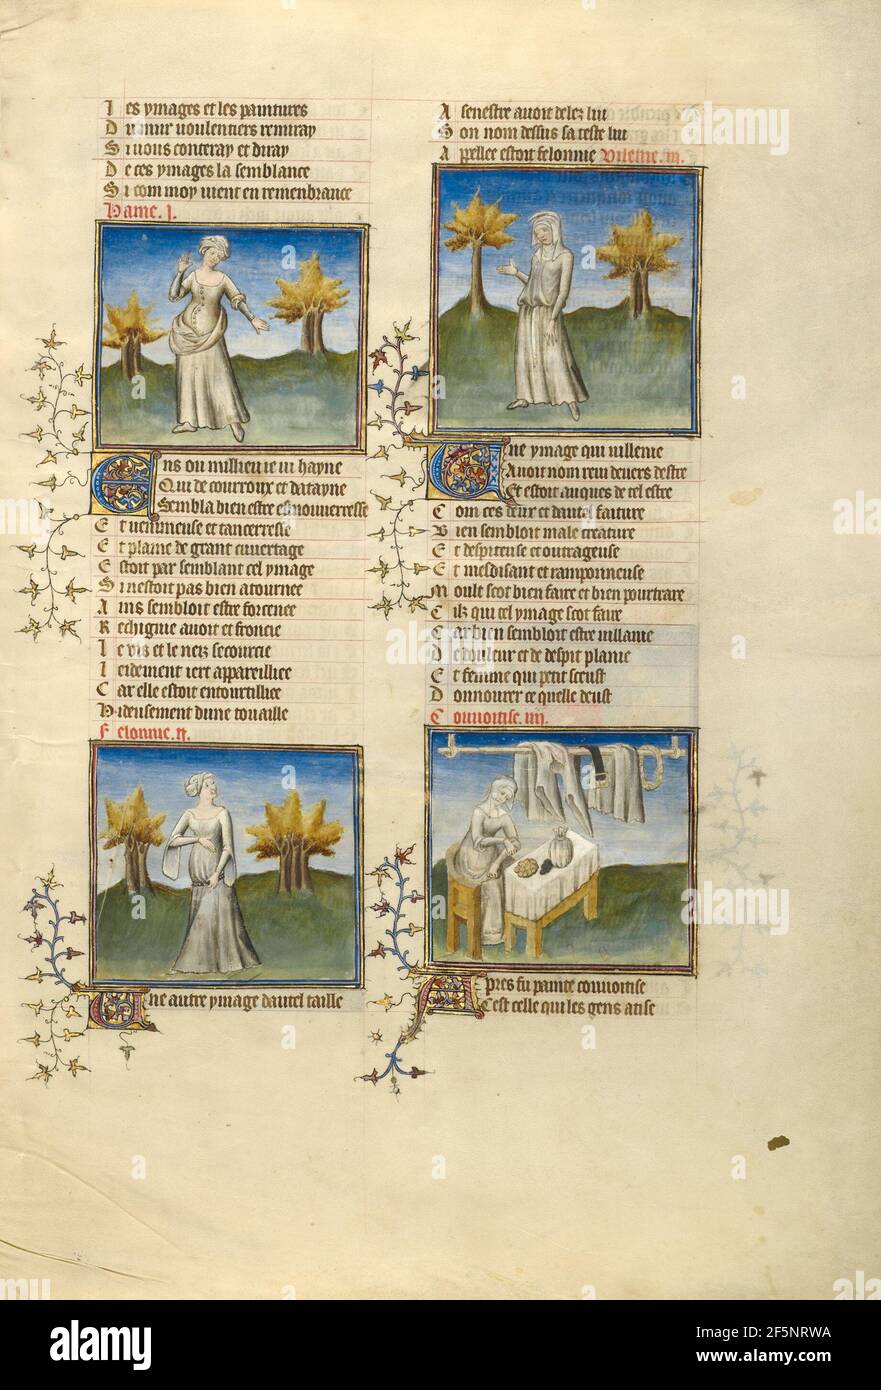 Les ymages et les paintures
Du mur voulentiers remiray
Si vous conteray et diray
De ces ymages la semblance
Si com moy vient en remembrance
Hame. j.
Ens ou millieu je vi hayne
Qui de courroux et datayne
Sembla bien estre esmouverresse
Et venimeuse et tancerresse
Et plaine de grant cuvertage
Estoit par semblant cel ymage
Si nestoit pas bien atournee
Ains sembloit estre forcenee
Rechignie avoit et froncie
Le vis et le neiz secourcie
Leidement iert appareilliee
Car elle estoit entortilliee
Hideusement dune touaille
Felonnie. ij.
Une autre ymage dautel taille
A senestre avoit delez lui
Son nom dessus sa teste lui
Appellee estoit felonnie Vilenie. iij.
Une ymage qui villenie
Avoit nom revi devers destre
Et estoit auques de tel estre
Com ces deux et dautel faiture
Bien sembloit male creature
Et despiteuse et outrageuse
Et mesdisant et ramponneuse
Moult scot bien faire et bien pourtraire
Cilz qui tel ymage scot faire
Car bien sembloit estre villanie
De douleur et de despit plaine
Et femme qui petit sceust
Donnourer ce quelle deust
Couvoitise. iiij.
Apres fu painte couvoitise
Cest celle qui les gens atise
alamy
Image ID: 2F5NRWA
www.alamy.com